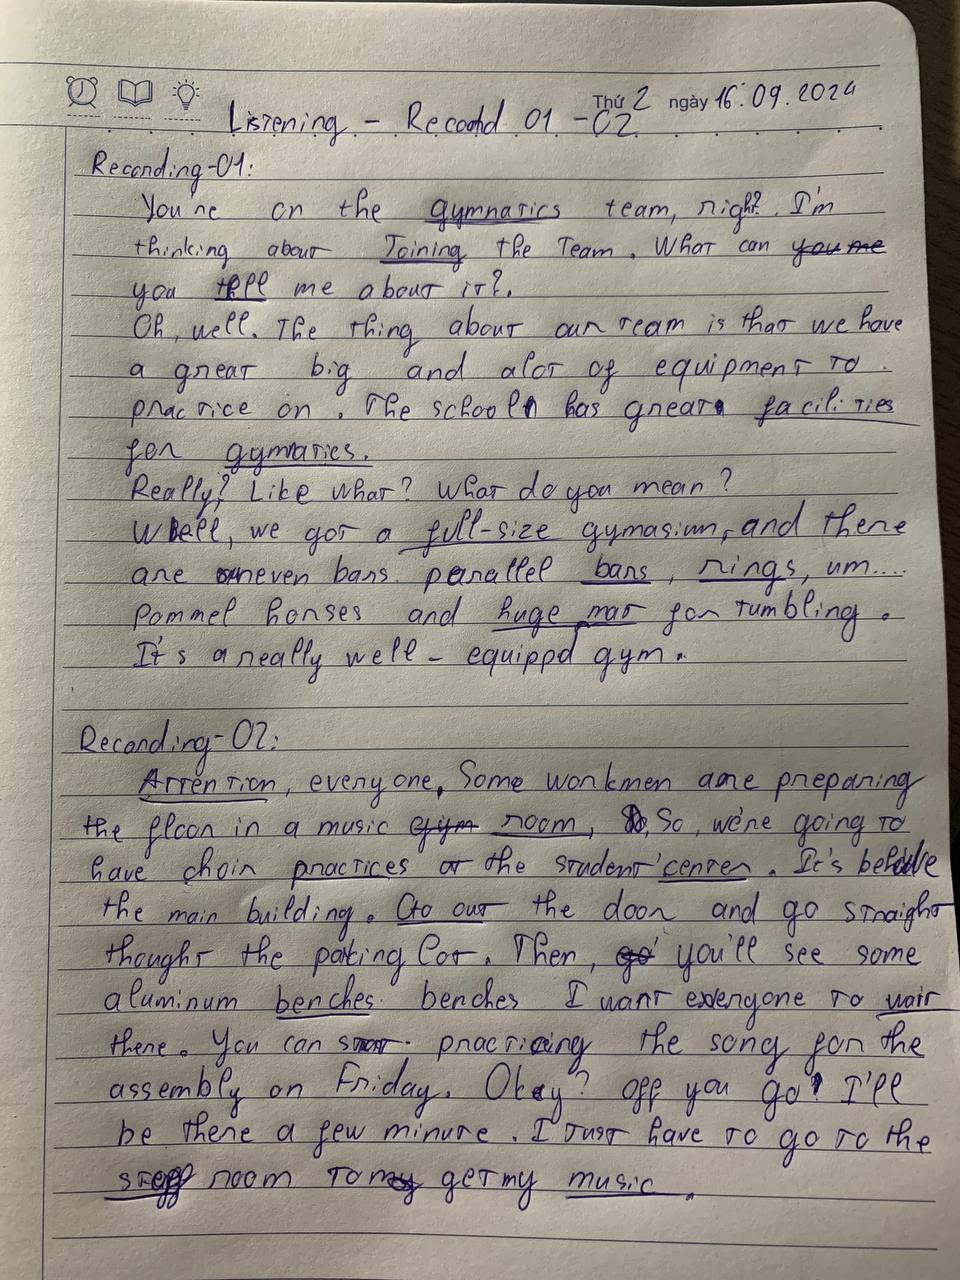 Thứ 2 ngày 16.09.2024
Listening - Record 01 - 02
Recording-01:
You're on the gymnatics team, right? I'm
thinking about Joining the Team. What can you me
you tell me about it?.
Oh, well. The thing about our team is that we have
a great big and alot of equipment to
practice on. The school has great facilities
for gymnatics.
Really? Like what? What do you mean?
Well, we got a full-size gymasium, and there
are uneven bars parallel bars, rings, um....
Pommel horses and huge mat for tumbling.
It's a really well-equippd gym.
Recording-02:
Attention, everyone, Some workmen are preparing
the floor in a music gym room, So, we're going to
have choir practices at the student center. It's behide
the main building. Go out the door and go straight
thought the paking lot. Then, go you'll see some
aluminum benches benches I want everyone to wait
there. You can start practicing the song for the
assembly on Friday. Okay? off you go! I'll
be there a few minute. I Just have to go to the
staff room to my get my music.